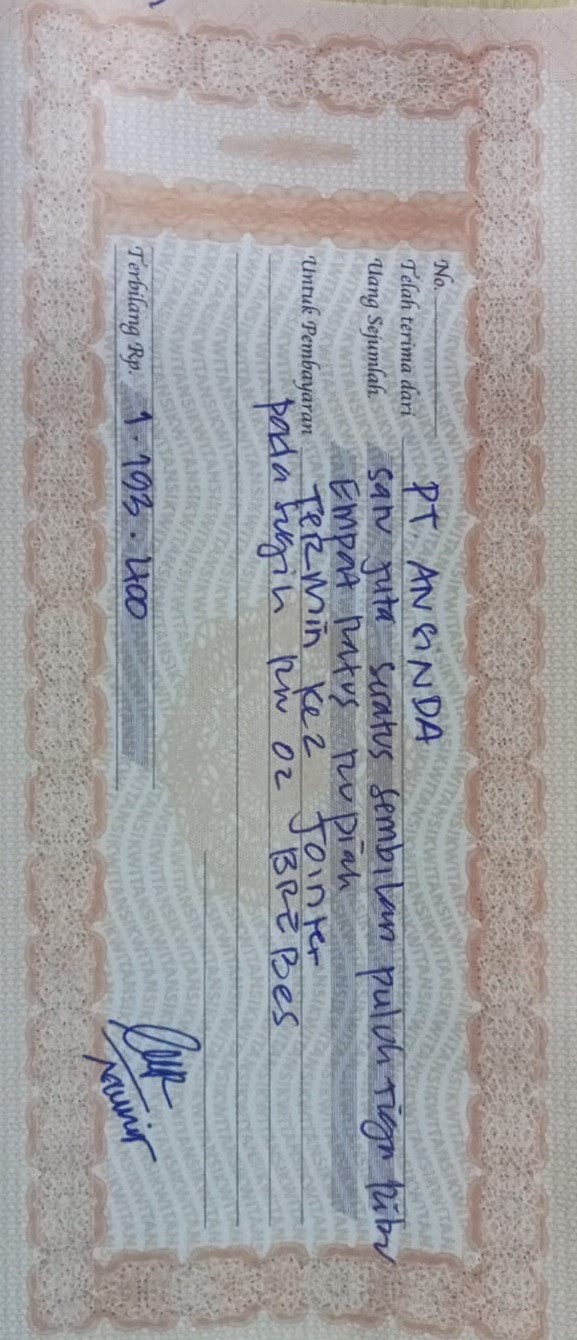 No.
Telah terima dari PT. ANSINDA
Uang Sejumlah. satu juta seratus sembilan puluh tiga Ribu
Empat Ratus Rupiah
Untuk Pembayaran Termin ke 2 Jointer
pada RW 02 BREBes
Terbilang Rp. 1.193.400